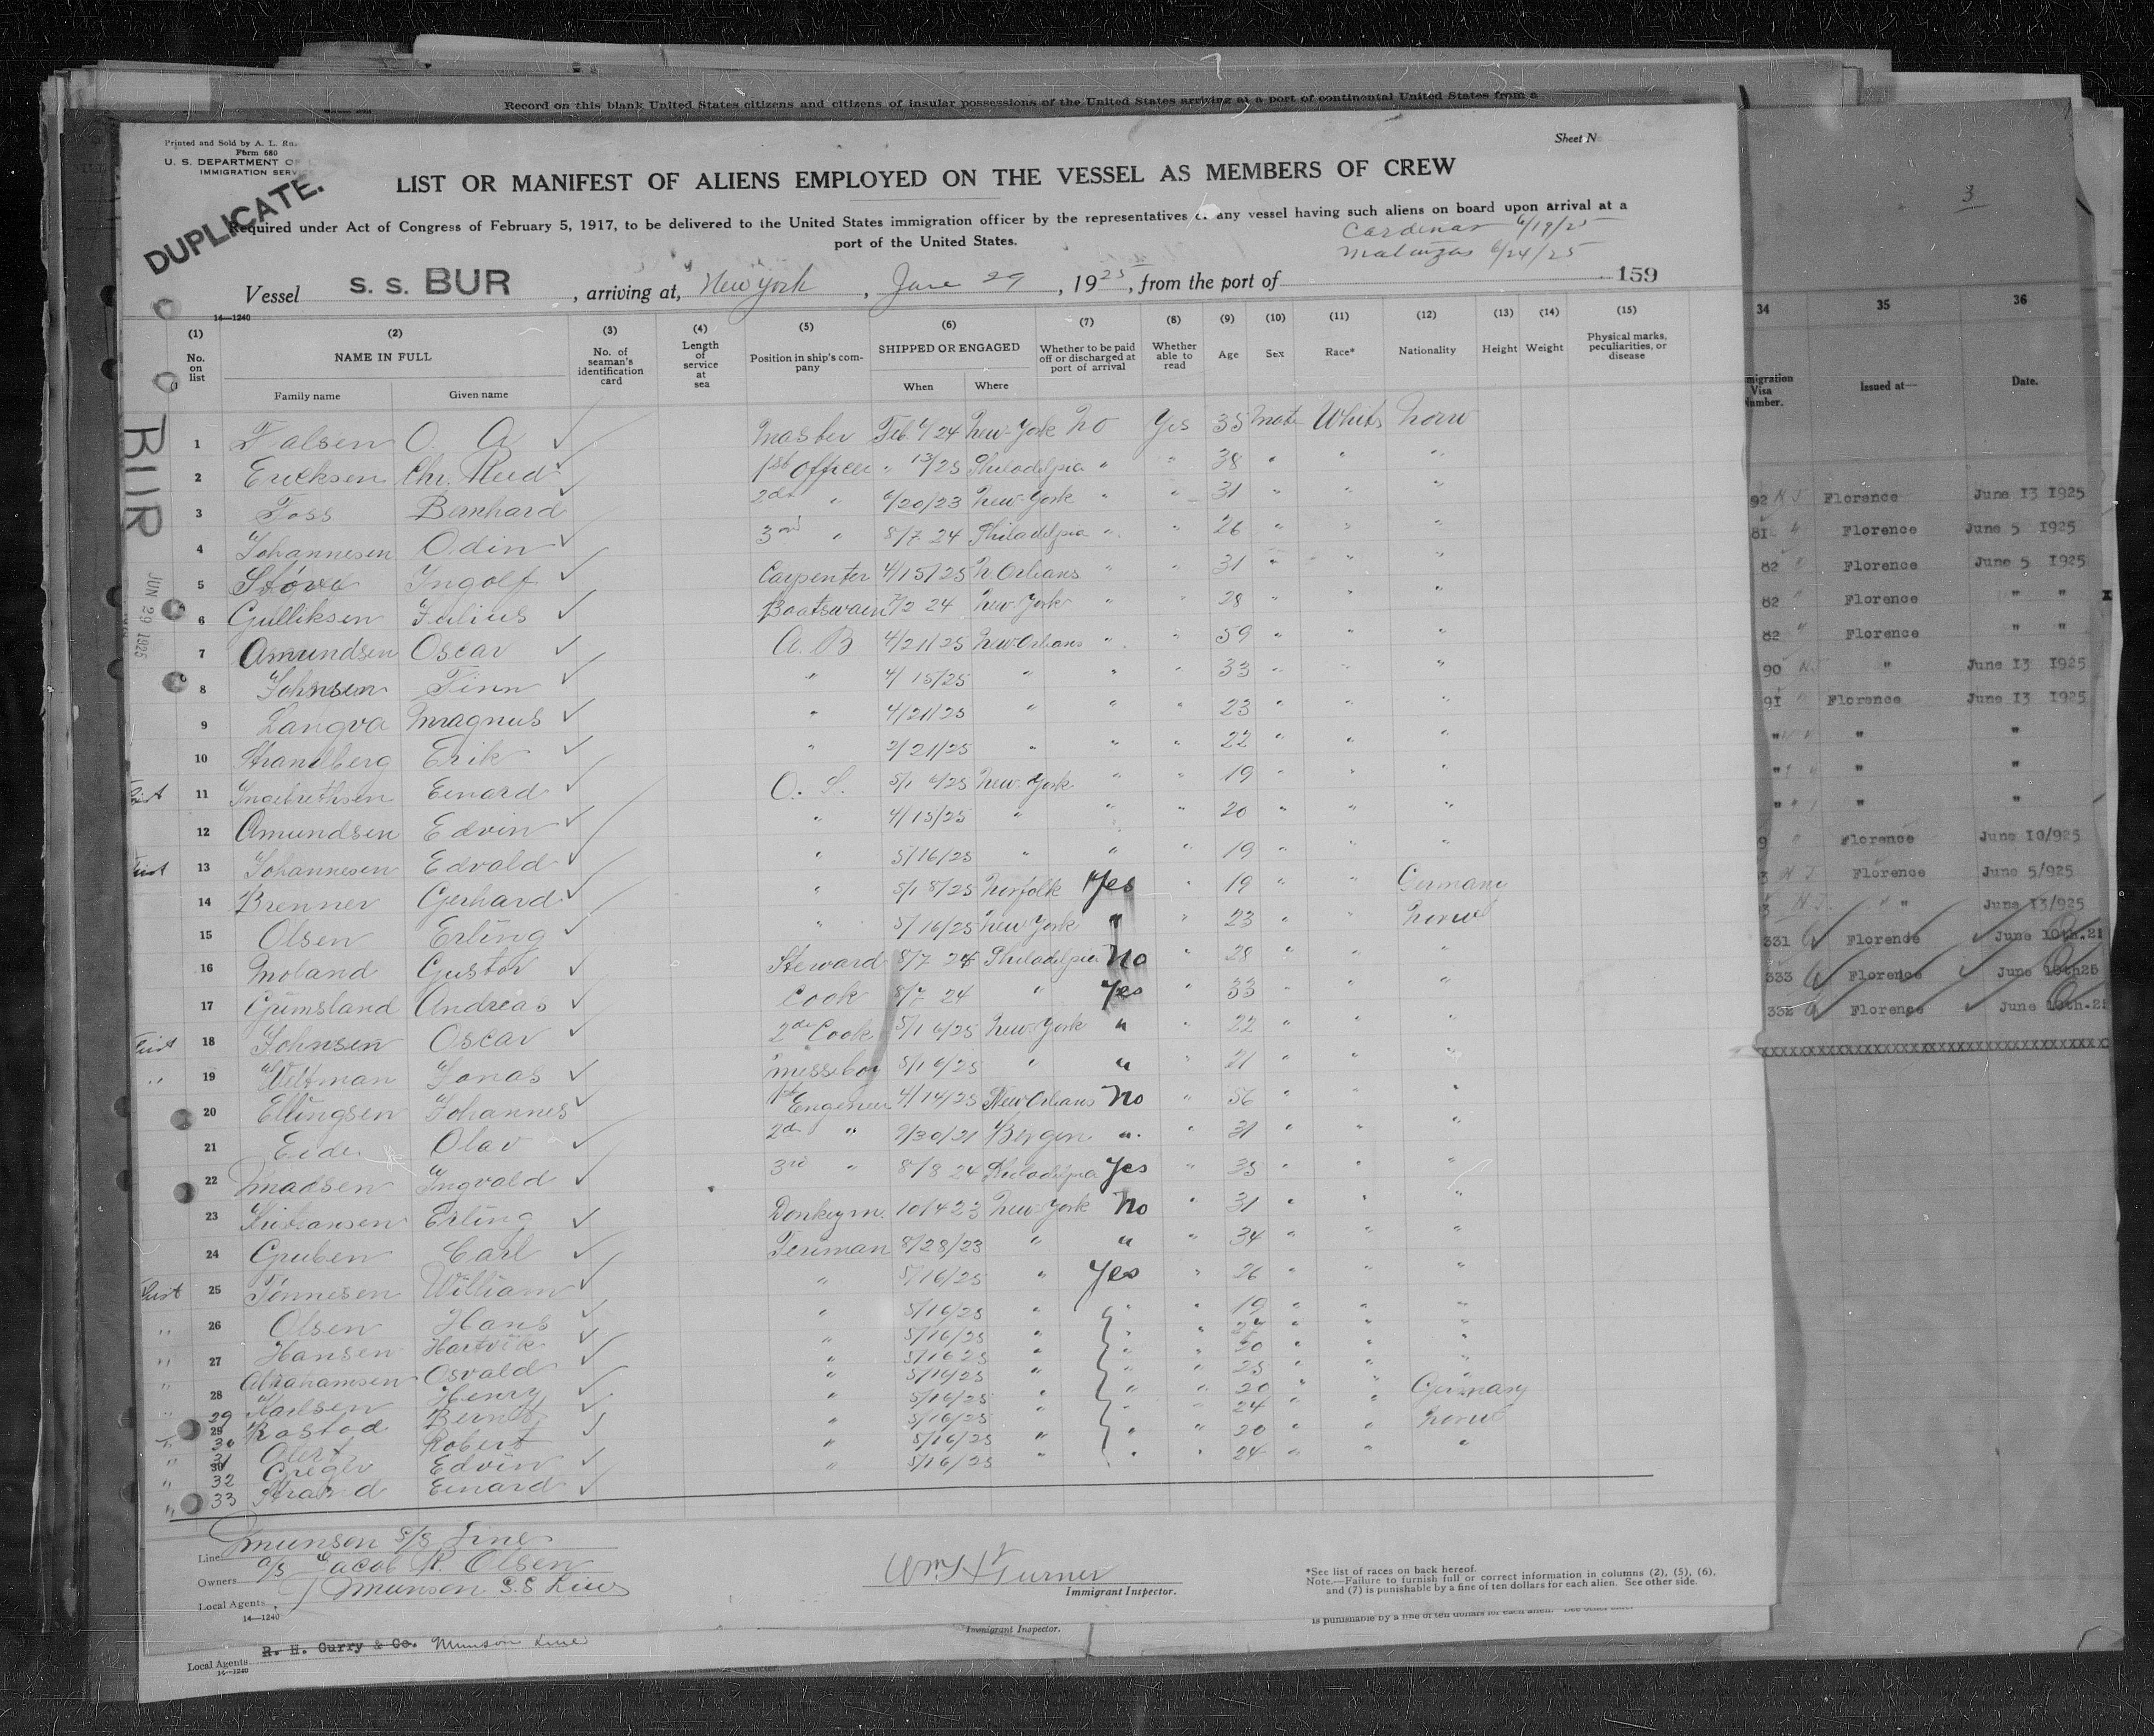 Record on this blank United States citizens and citizens of insular possessions of the United States arriving at a port of continental United States from a
Printed and Sold by A. L.
Form 680
U. S. DEPARTMENT OF
IMMIGRATION SERVICE
Sheet No
DUPLICATE.
LIST OR MANIFEST OF ALIENS EMPLOYED ON THE VESSEL AS MEMBERS OF CREW
Required under Act of Congress of February 5, 1917, to be delivered to the United States immigration officer by the representatives of any vessel having such aliens on board upon arrival at a
port of the United States.
Cardenas 6/19/25
Matanzas 6/24/25
Vessel S. S. BUR, arriving at, New York, June 29, 1925, from the port of 159
14—1240
(1) (2) (3) (4) (5) (6) (7) (8) (9) (10) (11) (12) (13) (14) (15)
No. on list NAME IN FULL No. of seaman's identification card Length of service at sea Position in ship's company SHIPPED OR ENGAGED Whether to be paid off or discharged at port of arrival Whether able to read Age Sex Race* Nationality Height Weight Physical marks, peculiarities, or disease
Family name Given name When Where
BUR
JUN 29 1925
1 Falsen O. A Master Feb. 6/24 New-York No Yes 35 Male White Norw
2 Ericksen Chr. Reed 1st Officer " 13/25 Philadelpia " " 38 " " "
3 Foss Bernhard 2d " 6/20/23 New-York " " 31 " " "
4 Johannesen Odin 3rd " 8/7 24 Philadelpia " " 26 " " "
5 Stove Ingolf Carpenter 4/15/25 N. Orleans " " 31 " " "
6 Gulliksen Julius Boatswain 7/2 24 New-York " " 28 " " "
7 Amundsen Oscar A. B 4/21/25 New Orleans " " 59 " " "
8 Johnsen Finn " 4/15/25 " " 33 " " "
9 Langva Magnus " 4/21/25 " " " 23 " " "
10 Strandberg Erik " 2/21/25 " " " 22 " " "
First 11 Ingebrethsen Einard O. S. 5/16/25 New-York " " 19 " " "
12 Amundsen Edvin " 4/15/25 " " " 20 " " "
First 13 Johannesen Edvald " 5/16/25 " " " 19 " " "
14 Brenner Gerhard " 5/18/25 Norfolk Yes " 19 " " Germany
15 Olsen Erling " 5/16/25 New York " " 23 " " Norw
16 Moland Gustav Steward 8/7 24 Philadelpia No " 28 " " "
17 Grimsland Andreas Cook 8/7 24 " Yes " 33 " " "
First 18 Johnsen Oscar 2d Cook 5/16/25 New-York " " 22 " " "
" 19 Veltman Jonas Messeboy 5/16/25 " " 21 " " "
20 Ellingsen Johannes 1st Engeneer 4/14/25 New Orleans No " 56 " " "
21 Eide Olav 2d " 9/30/21 Bergen " " 31 " " "
22 Madsen Ingvald 3rd " 8/8 24 Philadelpia Yes " 35 " " "
23 Kristiansen Erling Donkeym. 10/4 23 New-York No " 31 " " "
24 Gruben Carl Fireman 8/28/23 " " " 34 " " "
First 25 Tønnesen William " 5/16/25 " Yes " 26 " " "
" 26 Olsen Hans " 5/16/25 " " " 19 " " "
" 27 Hansen Hartvik " 5/16/25 " " "
" 28 Abrahamsen Osvald " 5/16 25 " " " 20 " " "
29 Karlsen Henry " 5/16/25 " " " 25 " " "
" 30 Rostad Berndt " 5/16/25 " " " 20 " "
" 31 Robert " 5/16/25 " " 24 " " Germany
" 32 Greger Edvin " 5/16/25 " " 20 " " Norw
" 33 Strand Einard " 5/16/25 " " 24 " " "
Line Munson S/S Line
Owners A/S Jacob R. Olsen
Local Agents Munson S.S Line
14—1240
Wm H Turner
Immigrant Inspector.
*See list of races on back hereof.
Note.—Failure to furnish full or correct information in columns (2), (5), (6),
and (7) is punishable by a fine of ten dollars for each alien. See other side.
is punishable by a fine of ten dollars for each alien. See other side.
Immigrant Inspector.
R. H. Curry & Co. Munson Line
Local Agents
14—1240
3
34 35 36
migration Visa Number. Issued at— Date.
92 N J Florence June 13 1925
81 " Florence June 5 1925
82 " Florence June 5 1925
82 " Florence " "
82 " Florence " "
90 N.J " June 13 1925
91 " Florence June 13 1925
" " " "
" " " "
" " " "
9 " Florence June 10/925
3 N J Florence June 5/925
3 N J. " " June 13/925
331 Florence June 10th.25
333 Florence June 10th25
332 Florence June 10th.25
xxxxxxxxxxxxxxxxxxxxxxxxxxxxxxxxxxx